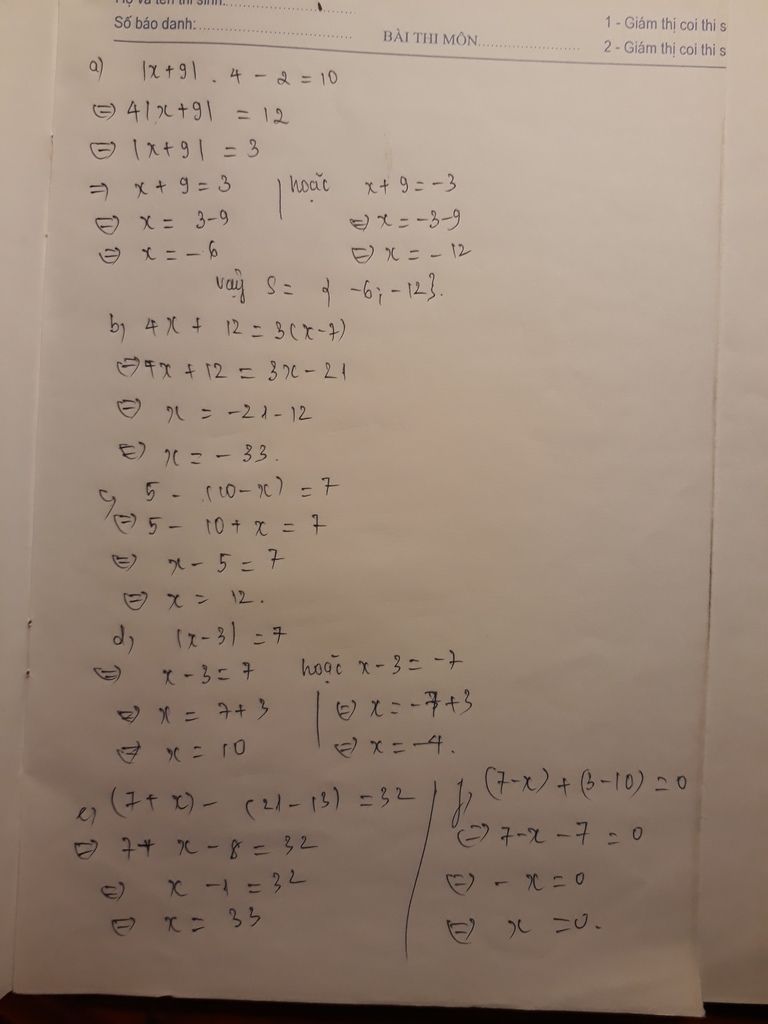 Họ và tên thí sinh:
Số báo danh:
BÀI THI MÔN
1 - Giám thị coi thi s
2 - Giám thị coi thi s
a) |x+9| . 4 - 2 = 10
⇔ 4|x+9| = 12
⇔ |x+9| = 3
⇒ x + 9 = 3 | hoặc x + 9 = -3
⇔ x = 3-9 ⇔ x = -3-9
⇔ x = -6 ⇔ x = -12
vậy S = { -6; -12}.
b, 4x + 12 = 3(x-7)
⇔ 4x + 12 = 3x - 21
⇔ x = -21 - 12
⇔ x = - 33.
c, 5 - (10-x) = 7
⇔ 5 - 10 + x = 7
⇔ x - 5 = 7
⇔ x = 12.
d, |x-3| = 7
⇔ x - 3 = 7 hoặc x - 3 = -7
⇔ x = 7+3 | ⇔ x = -7+3
⇔ x = 10 ⇔ x = -4.
e, (7+x) - (21-13) = 32
⇔ 7 + x - 8 = 32
⇔ x - 1 = 32
⇔ x = 33
f, (7-x) + (3-10) = 0
⇔ 7-x - 7 = 0
⇔ - x = 0
⇔ x = 0.